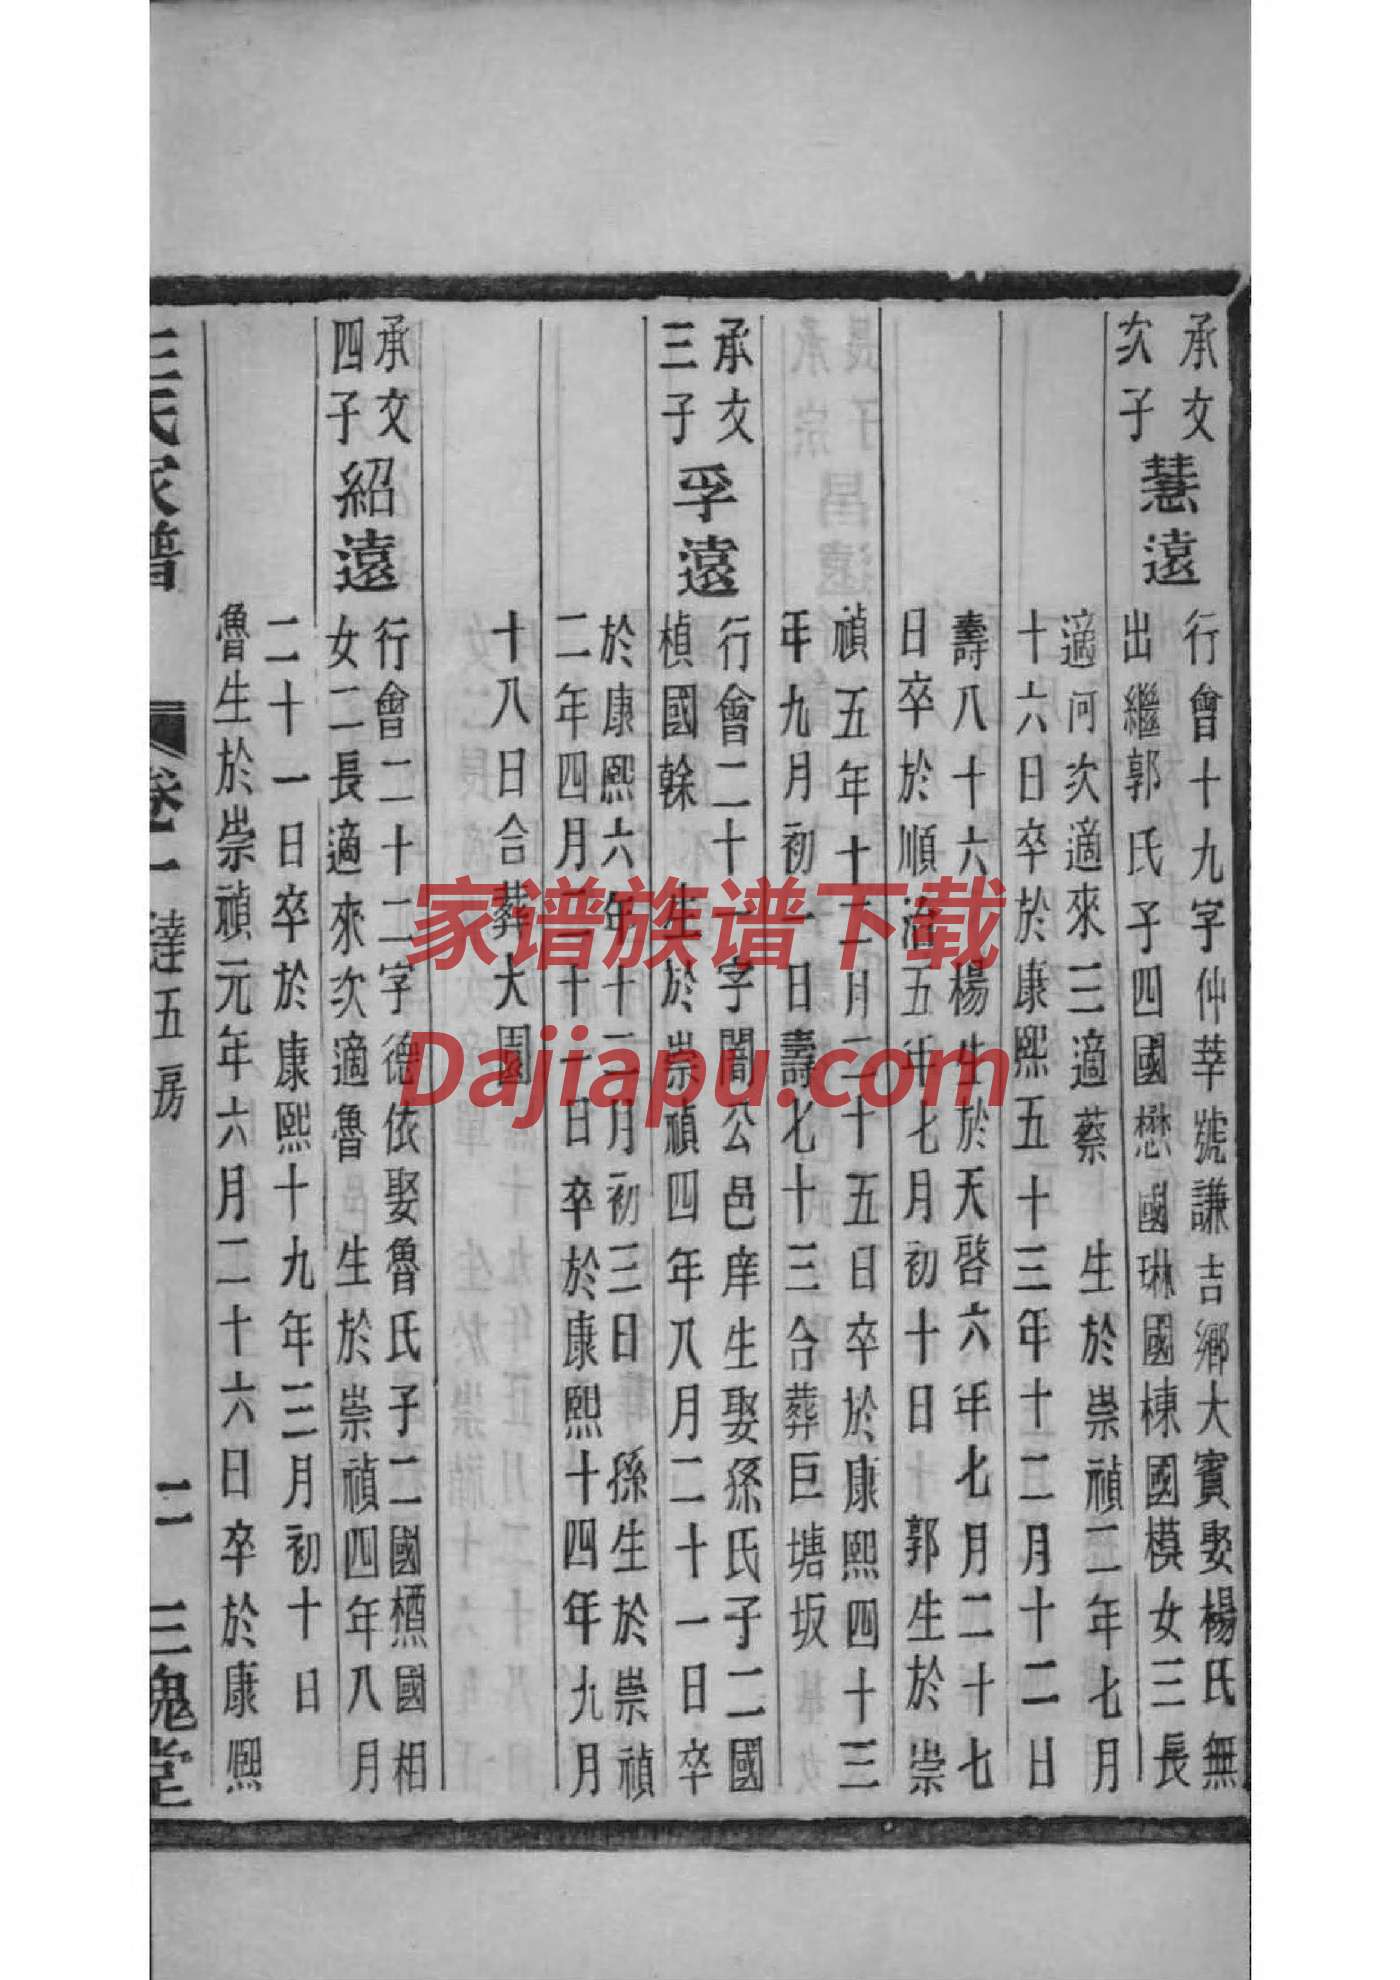 承文
次子
慧遠
行會十九字仲莘號謙吉鄉大賓娶楊氏無
出繼郭氏子四國懋國琳國棟國模女三長
適河次適來三適蔡 生於崇禎二年七月
十六日卒於康熙五十三年十二月十二日
壽八十六 楊生於天啓六年七月二十七
日卒於順治五年七月初十日 郭生於崇
禎五年十二月二十五日卒於康熙四十三
年九月初一日壽七十三合葬巨塘坂
承文
三子
孚遠
行會二十一字閣公邑庠生娶孫氏子二國
楨國榦 生於崇禎四年八月二十一日卒
於康熙六年十二月初三日 孫生於崇禎
二年四月二十二日卒於康熙十四年九月
十八日合葬大園
承文
四子
紹遠
行會二十二字德依娶魯氏子二國槱國相
女二長適來次適魯 生於崇禎四年八月
二十一日卒於康熙十九年三月初十日
魯生於崇禎元年六月二十六日卒於康熙
王氏家譜
卷十一 達五房
二
三槐堂
家谱族谱下载
Dajiapu.com